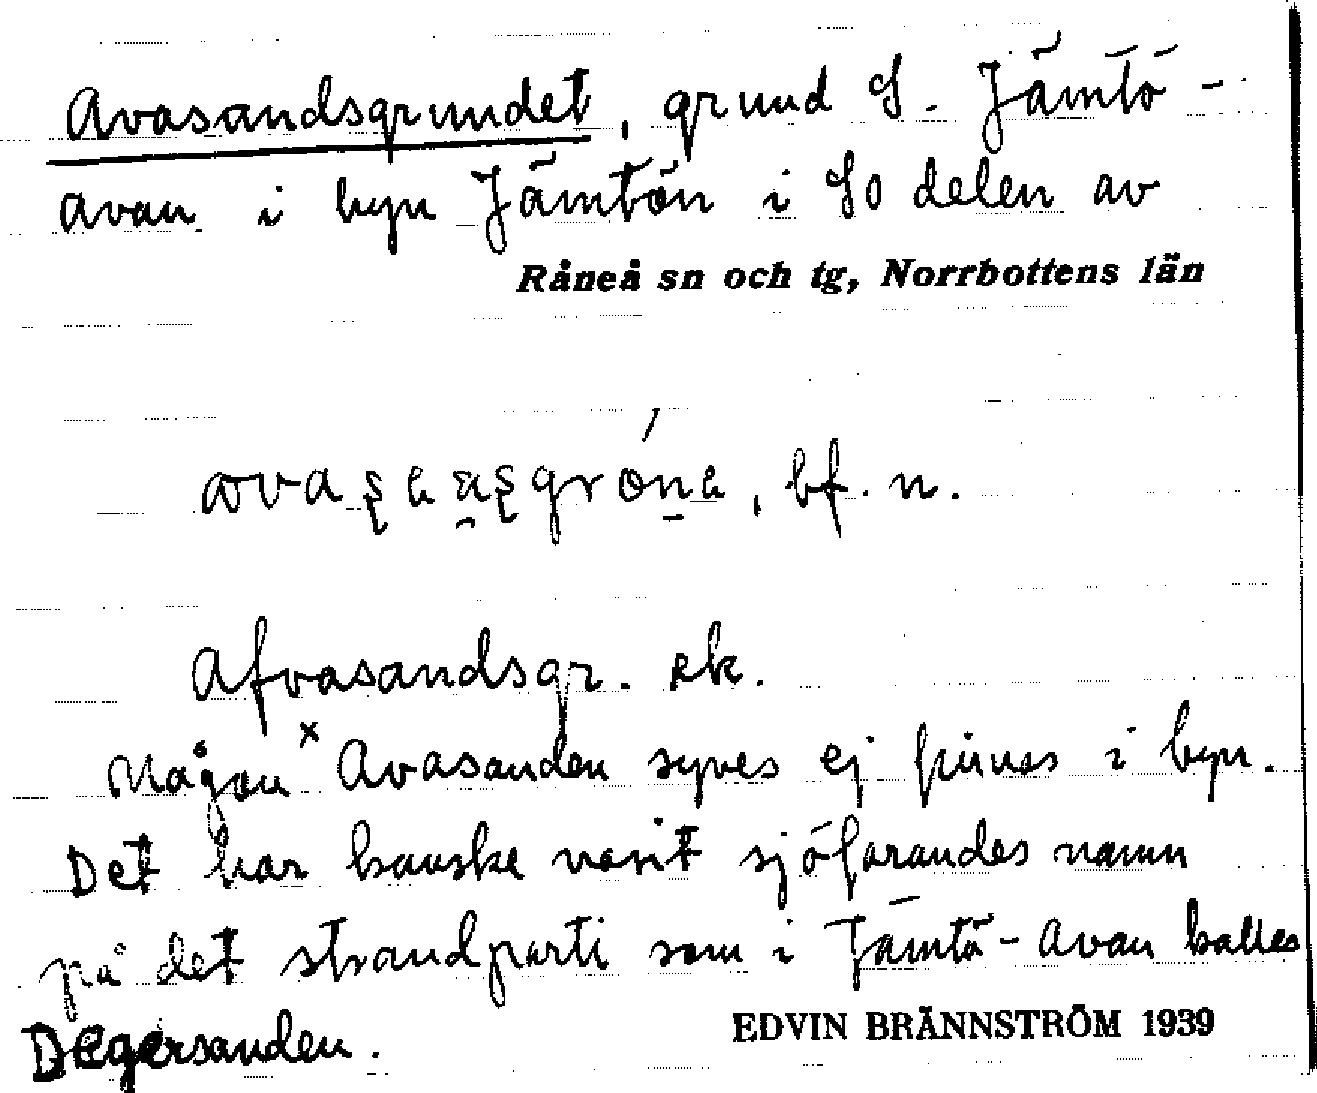 Avasandsgrundet, grund S. Jämtö-
avan i byn Jämtön i SO delen av
Råneå sn och tg, Norrbottens län
bf. n.
Afvasandsgr. ek.
Någon ˣAvasanden synes ej finnas i byn.
Det har kanske varit sjöfarandes namn
på det strandparti som i Jämtö-Avan kallas
Degersanden.
EDVIN BRÄNNSTRÖM 1939